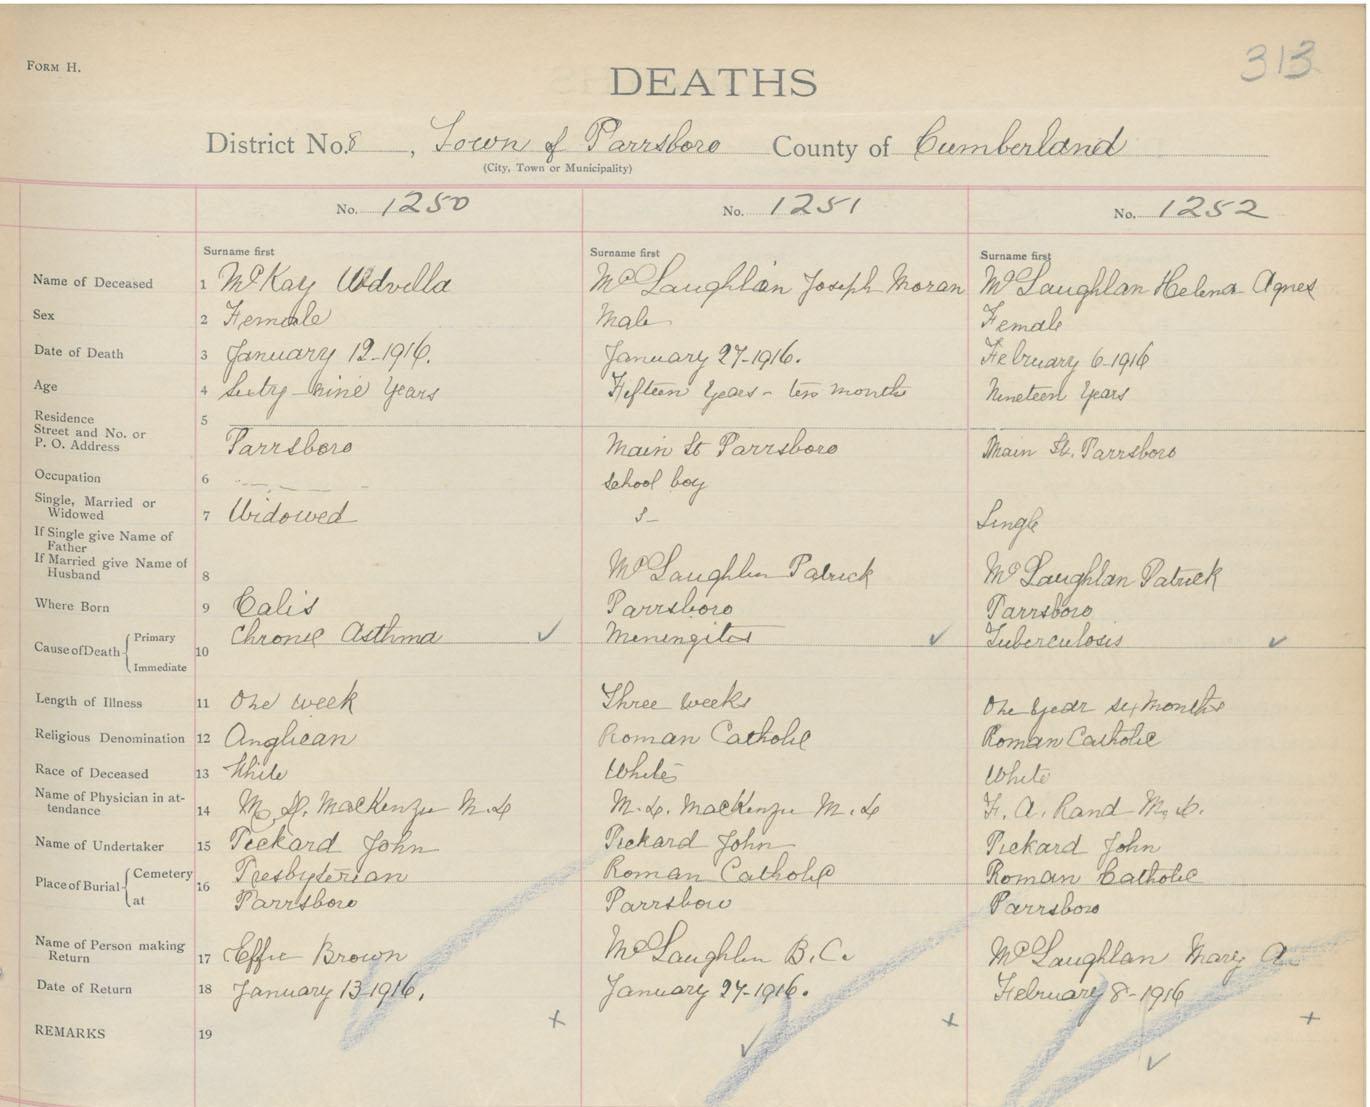 313
FORM H.
DEATHS
District No. 8, Town of Parrsboro County of Cumberland
(City, Town or Municipality)
No. 1250 No. 1251 No. 1252
Surname first Surname first Surname first
Name of Deceased 1 McKay McLaughlan Joseph Moran McLaughlan Helena Agnes
Sex 2 Female Male Female
Date of Death 3 January 12-1916. January 27-1916. February 6-1916
Age 4 Sixty-nine Years Fifteen Years - ten months Nineteen Years
Residence
Street and No. or
P. O. Address 5 Parrsboro Main St Parrsboro Main St. Parrsboro
Occupation 6 school boy
Single, Married or
Widowed 7 Widowed S- Single
If Single give Name of
Father
If Married give Name of
Husband 8 McLaughlin Patrick McLaughlan Patrick
Where Born 9 Calis Parrsboro Parrsboro
Cause of Death Primary Chronic Asthma ✓ Meningitis ✓ Tuberculosis ✓
Immediate 10
Length of Illness 11 One week Three weeks One year six months
Religious Denomination 12 Anglican Roman Catholic Roman Catholic
Race of Deceased 13 White White White
Name of Physician in at-
tendance 14 MacKenzie M.D. MacKenzie M.D. F. A. Rand M.D.
Name of Undertaker 15 Pickard John Pickard John Pickard John
Place of Burial Cemetery 16 Presbyterian Roman Catholic Roman Catholic
at Parrsboro Parrsboro Parrsboro
Name of Person making
Return 17 Effie Brown McLaughlin B. C. McLaughlan Mary A.
Date of Return 18 January 13-1916. January 27-1916. February 8-1916
REMARKS 19